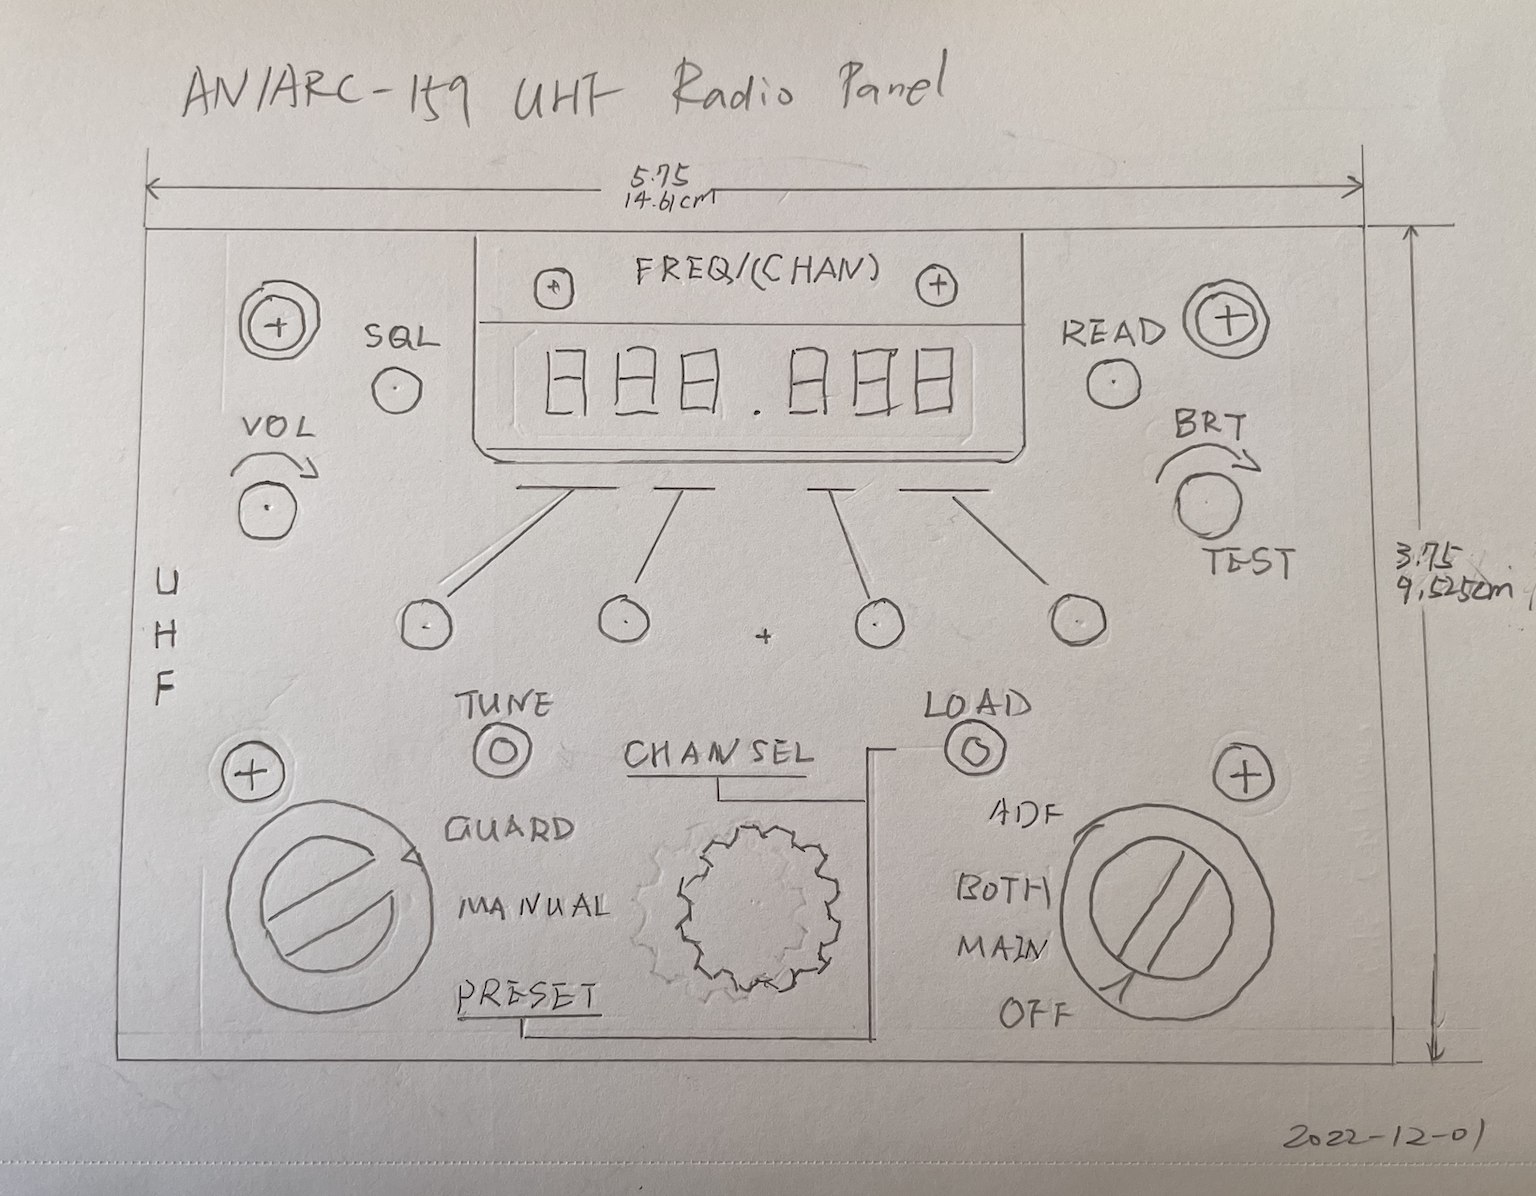 AN/ARC-159 UHF Radio Panel
5.75
14.61cm
FREQ/(CHAN)
SQL
READ
888.888
VOL
BRT
TEST
3.75
9.525cm
U
H
F
TUNE
LOAD
CHAN SEL
GUARD
ADF
MANUAL
BOTH
MAIN
PRESET
OFF
2022-12-01